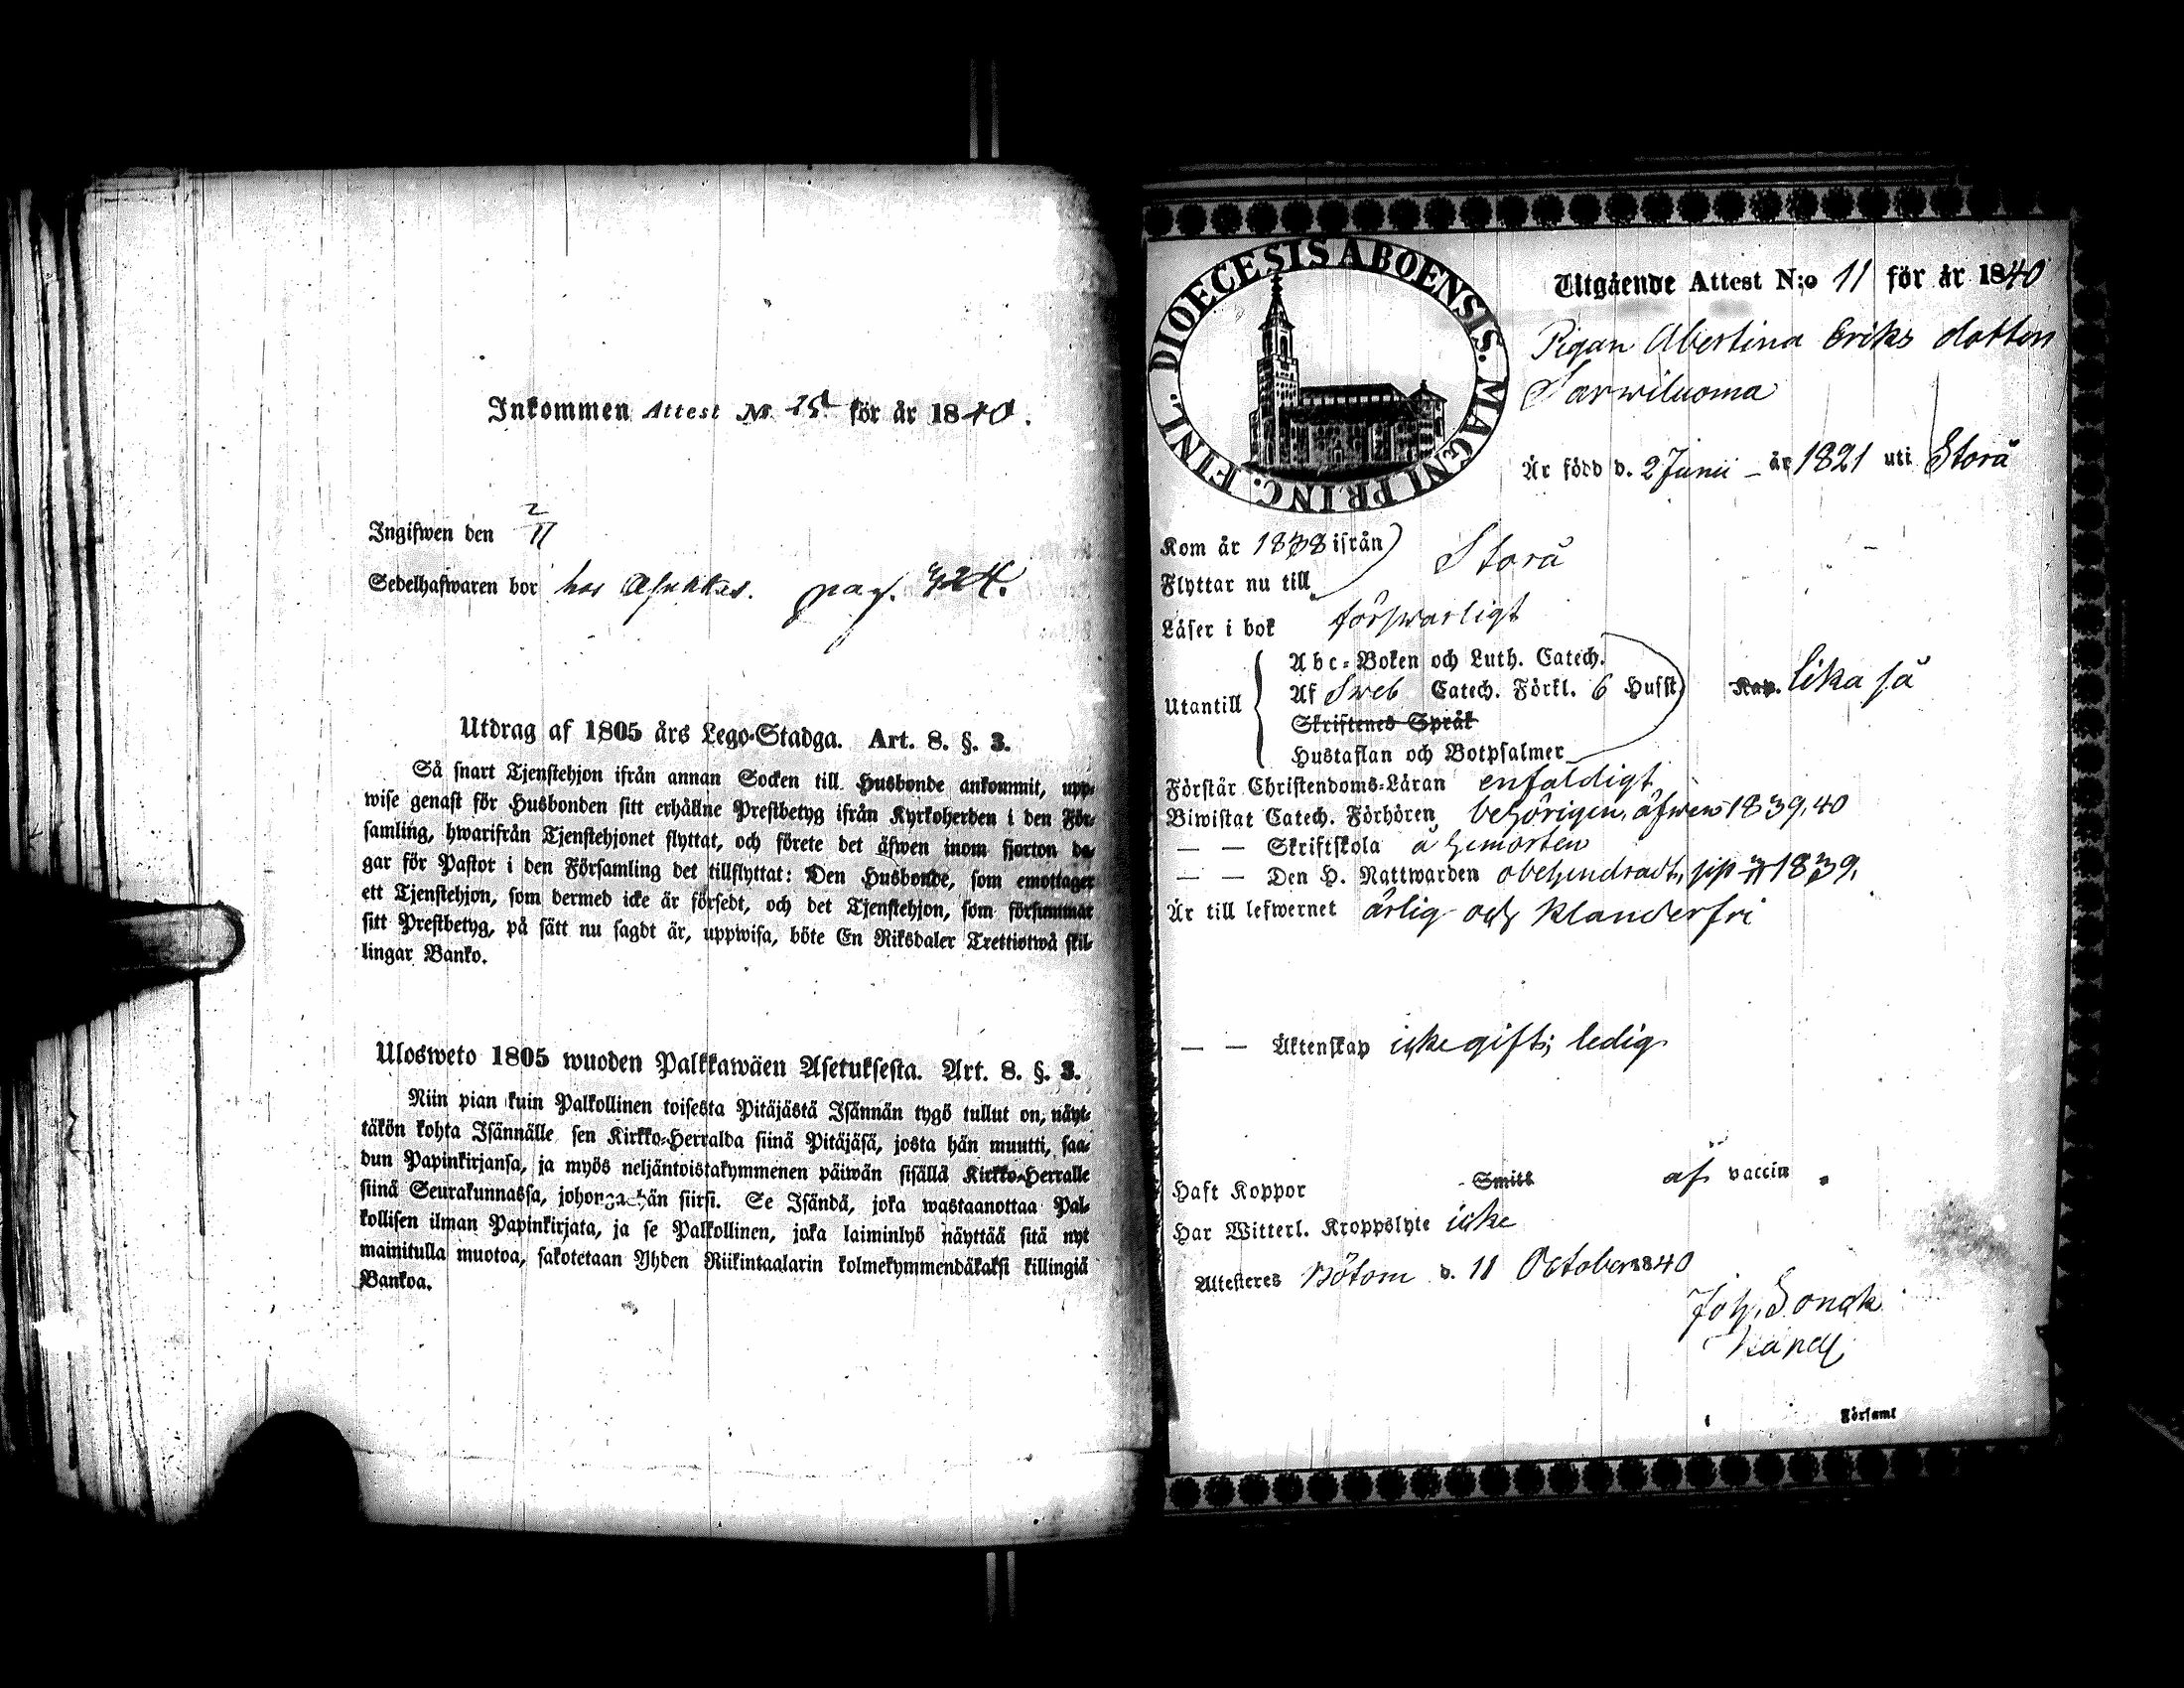 Inkommen Attest No 25 för år 1840.
Ingifwen den 2/11
Sedelhafwaren bor hos pag. 324.
Utdrag af 1805 års Lego-Stadga. Art. 8. §. 3.
Så snart Tjenstehjon ifrån annan Socken till Husbonde ankommit, upp-
wise genast för Husbonden sitt erhållne Prestbetyg ifrån Kyrkoherden i den För-
samling, hwarifrån Tjenstehjonet flyttat, och förete det äfwen inom fjorton da-
gar för Pastor i den Församling det tillflyttat: Den Husbonde, som emottager
ett Tjenstehjon, som dermed icke är försedt, och det Tjenstehjon, som försummar
sitt Prestbetyg, på sätt nu sagdt är, uppwisa, böte En Riksdaler Trettiotwå skil-
lingar Banko.
Ulosweto 1805 wuoden Palkkawäen Asetuksesta. Art. 8. §. 3.
Niin pian kuin Palkollinen toisesta Pitäjästä Isännän tygö tullut on, näyt-
täkön kohta Isännälle sen Kirkko-Herralda siinä Pitäjäsä, josta hän muutti, saa-
dun Papinkirjansa, ja myös neljäntoistakymmenen päiwän sisällä Kirkko-Herralle
siinä Seurakunnassa, johonga hän siirsi. Se Isändä, joka wastaanottaa Pal-
kollisen ilman Papinkirjata, ja se Palkollinen, joka laiminlyö näyttää sitä nyt
mainitulla muotoa, sakotetaan Yhden Riikintaalarin kolmekymmendäkaksi killingiä
Bankoa.
DIOECESIS ABOENSIS. MAGNI PRINC. FINL.
Utgående Attest N:o 11 för år 1840
Pigan Albertina Eriks dotter
Sarwiluoma
Är född d. 2 Junii – år 1821 uti Storå
Kom år 1838 ifrån
Flyttar nu till Storå
Läser i bok förswarligt
Utantill
Abc-Boken och Luth. Catech.
Af Sweb Catech. Förkl. 6 Hufst. Kap. lika så
Skriftenes Språk
Hustaflan och Botpsalmer
Förstår Christendoms-Läran enfaldigt
Biwistat Catech. Förhören behörigen, äfwen 1839, 40
— — Skriftskola å hemorten
— — Den H. Nattwarden obehindradt, 1839.
Är till lefwernet ärlig och klanderfri
— — Äktenskap icke gift; ledig
Haft Koppor Smitt af vaccin
Har Witterl. Kroppslyte icke
Attesteres Bötom d. 11 October 1840
Joh.
Församl